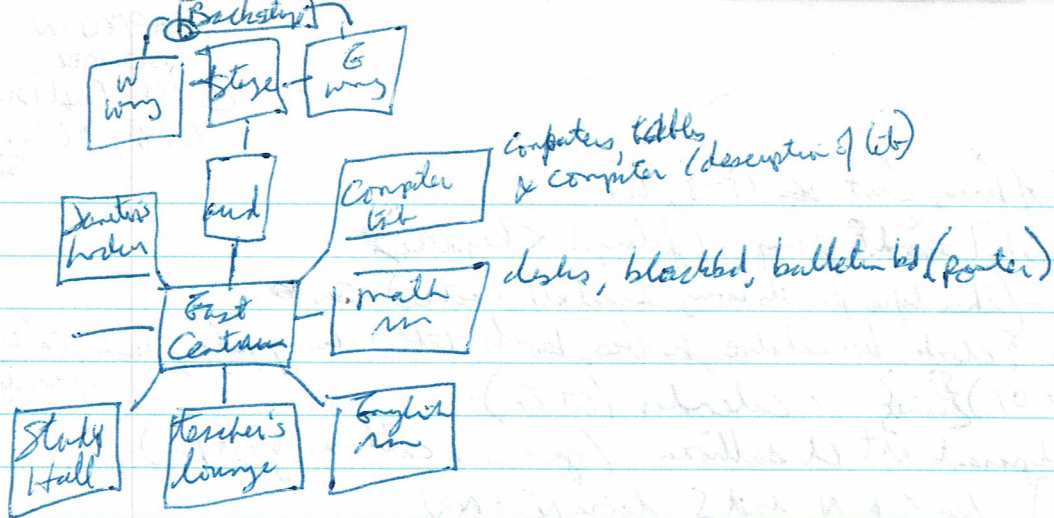 Backstage
W
wing
Stage
E
wing
aud
Computer
Lab
computers, tables
& computer (description of lab)
Janitor's
East
Centrum
math
rm
desks, blackbd, bulletin bd (poster)
Study
Hall
teacher's
lounge
English
rm